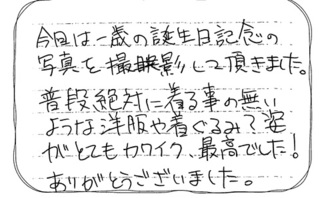 今回は一歳の誕生日記念の
写真を撮影して頂きました。
普段絶対に着る事の無い
ような洋服や着ぐるみ?姿
がとてもカワイク、最高でした!
ありがとうございました。